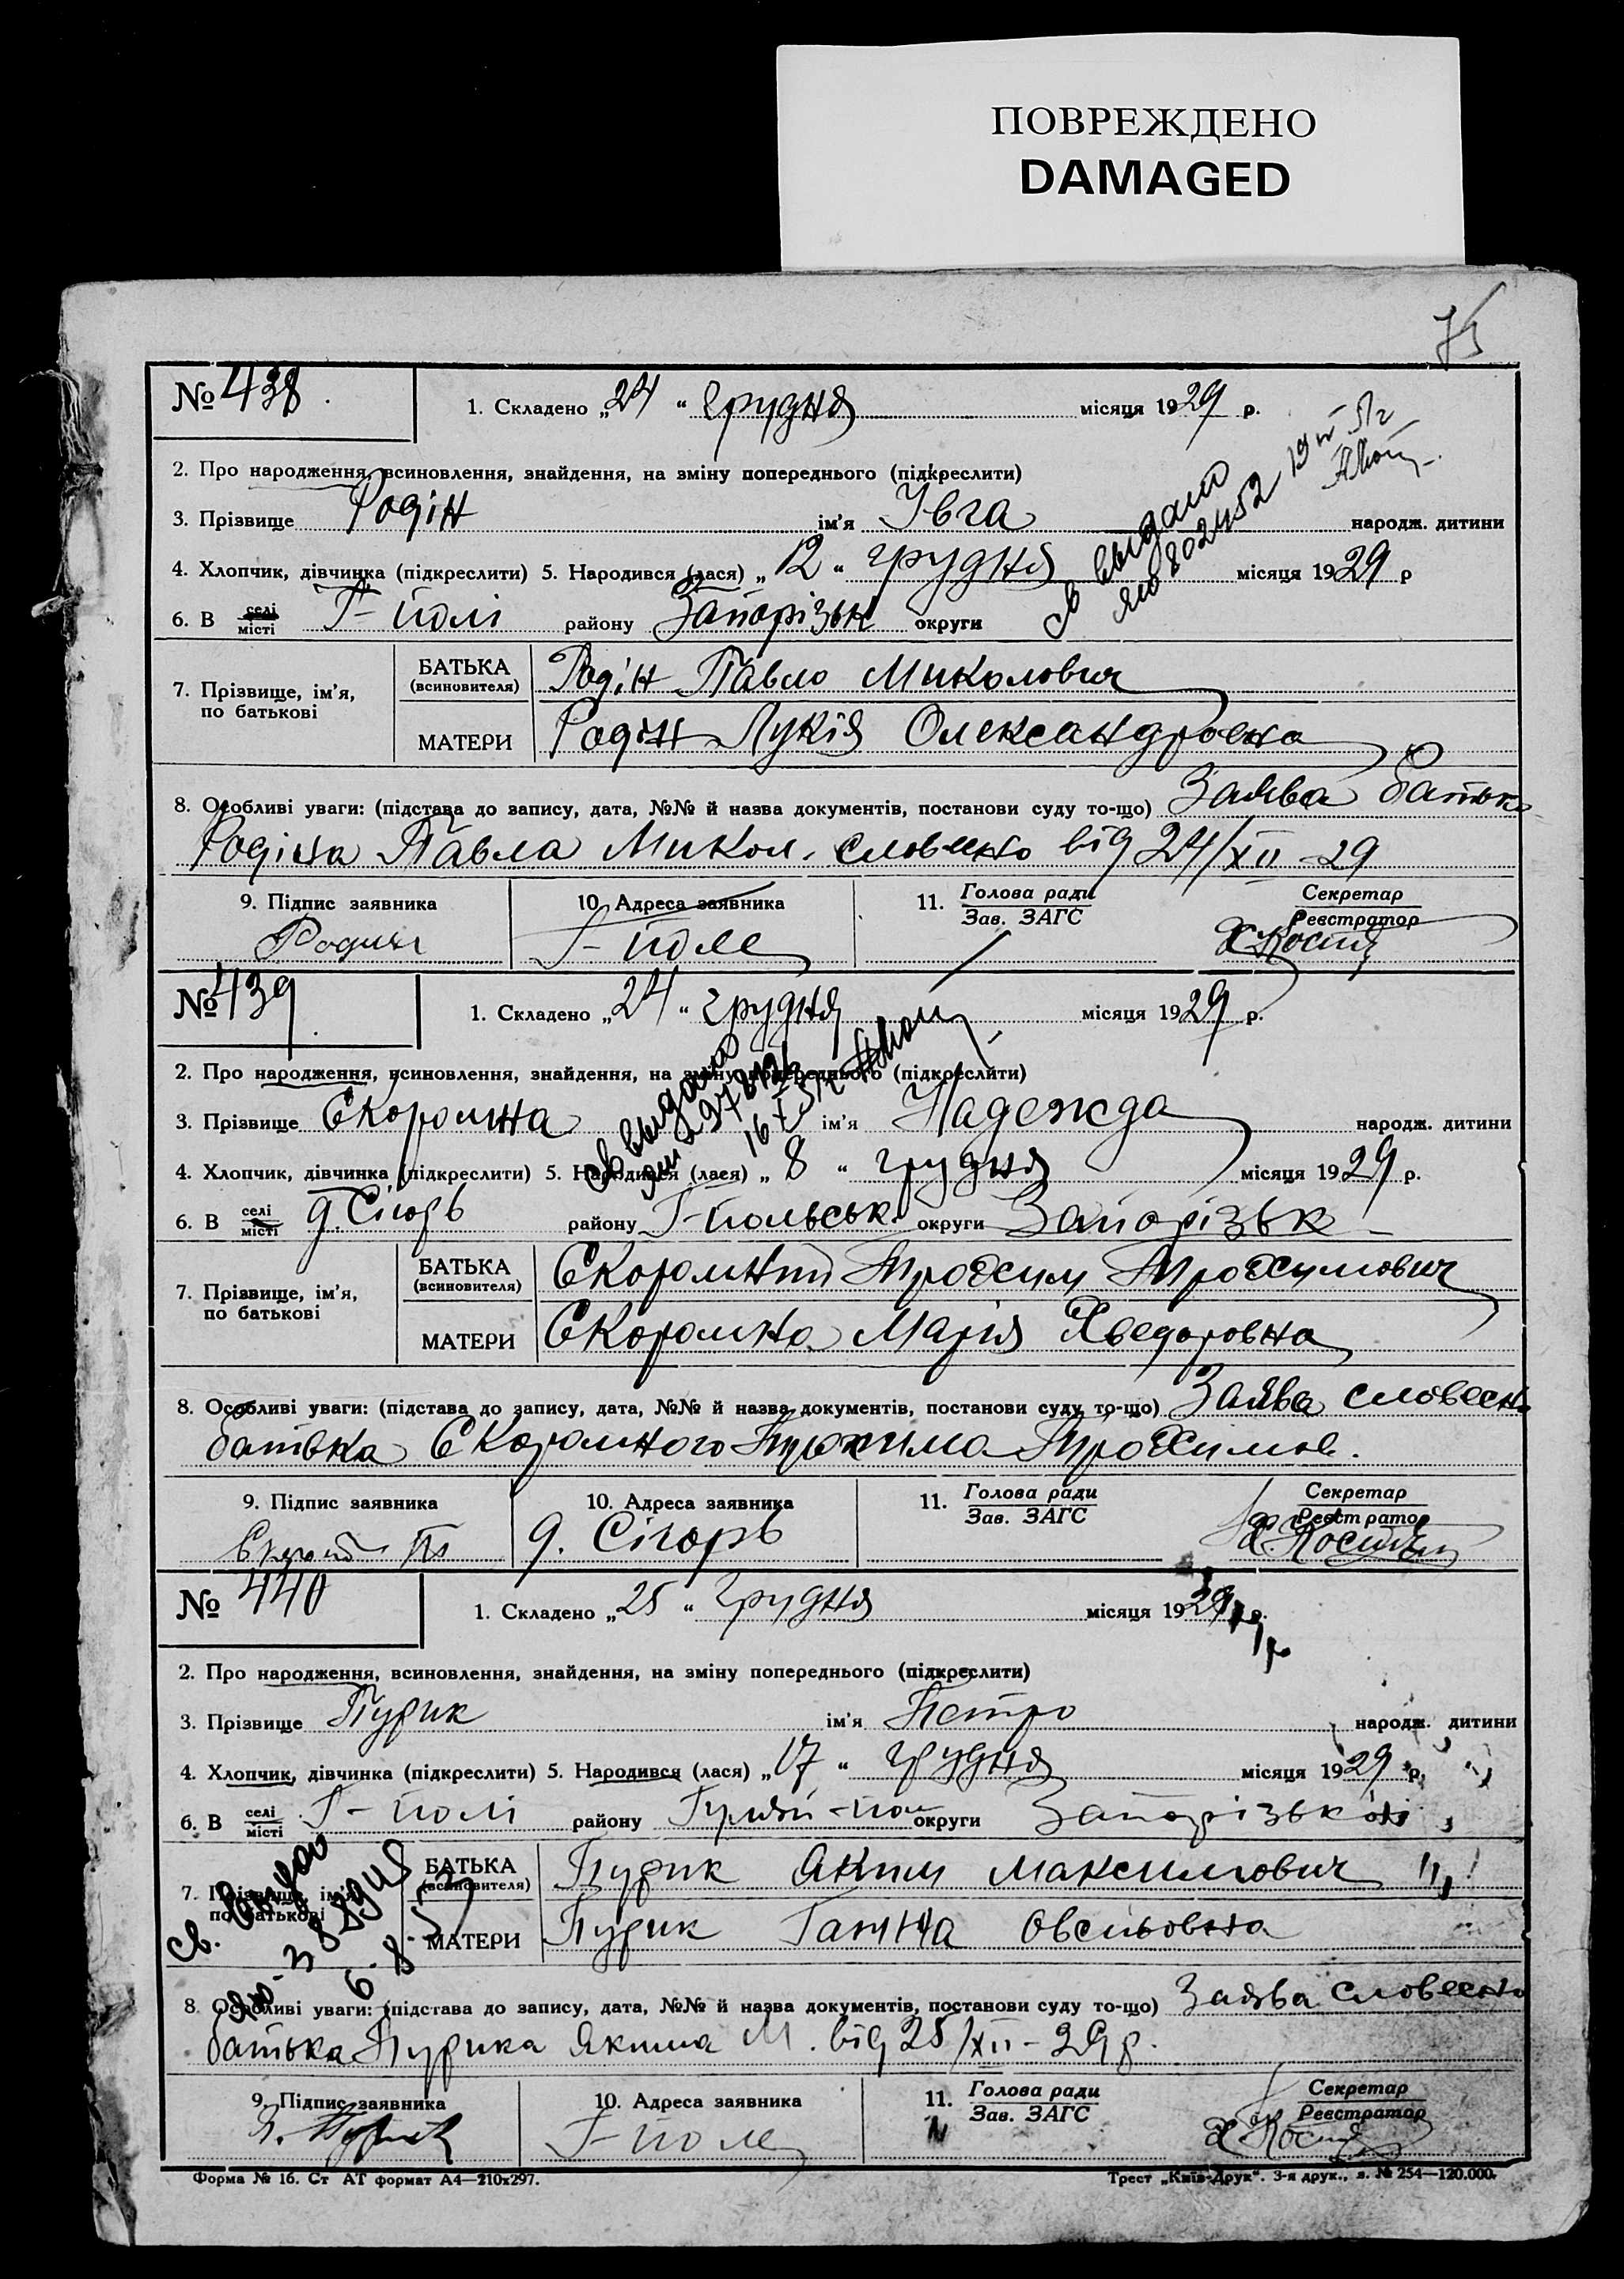 ПОВРЕЖДЕНО
DAMAGED
75
№ 438.
1. Складено „24“ грудня місяця 1929 р.
2. Про народження, всиновлення, знайдення, на зміну попереднього (підкреслити)
3. Прізвище Родін ім'я Івга народж. дитини
св выдано
яю 802452 19
4. Хлопчик, дівчинка (підкреслити) 5. Народився (лася) „12“ грудня місяця 1929 р
6. В селі місті Г-Полі району Запорізьк округи
7. Прізвище, ім'я, по батькові
БАТЬКА (всиновителя) Родін Павло Миколович
МАТЕРИ Родін Лукія Олександровна
8. Особливі уваги: (підстава до запису, дата, №№ й назва документів, постанови суду то-що) Заява батька
Родіна Павла Микол. словесно від 24/XII-29
9. Підпис заявника 10. Адреса заявника 11. Голова ради Зав. ЗАГС Секретар Реєстратор
Родин Г-Поле
№ 439.
1. Складено „24“ грудня місяця 1929 р.
2. Про народження, всиновлення, знайдення, на зміну попереднього (підкреслити)
св выдано
3. Прізвище Скоромна ім'я Надежда народж. дитини
4. Хлопчик, дівчинка (підкреслити) 5. Народився (лася) „8“ грудня місяця 1929 р.
6. В селі місті д. Сігорь району Г-Польськ. округи Запорізьк
7. Прізвище, ім'я, по батькові
БАТЬКА (всиновителя) Скоромний Трохим Трохимович
МАТЕРИ Скоромна Марія Хведоровна
8. Особливі уваги: (підстава до запису, дата, №№ й назва документів, постанови суду то-що) Заява словесн.
батька Скоромного Трохима Трохимов.
9. Підпис заявника 10. Адреса заявника 11. Голова ради Зав. ЗАГС Секретар Реєстратор
д. Сігорь
№ 440
1. Складено „25“ грудня місяця 1929 р.
2. Про народження, всиновлення, знайдення, на зміну попереднього (підкреслити)
3. Прізвище Пурик ім'я Петро народж. дитини
4. Хлопчик, дівчинка (підкреслити) 5. Народився (лася) „17“ грудня місяця 1929 р.
6. В селі місті Г-Полі району Гуляй-Пол округи Запорізької
7. Прізвище, ім'я, по батькові
БАТЬКА (всиновителя) Пурик Яким Максимович
МАТЕРИ Пурик Ганна Овсіьовна
Св. выдано
6.8.53
8. Особливі уваги: (підстава до запису, дата, №№ й назва документів, постанови суду то-що) Заява словесно
батька Пурика Якима М. від 25/XII-29 р.
9. Підпис заявника 10. Адреса заявника 11. Голова ради Зав. ЗАГС Секретар Реєстратор
Г-Поле
Форма № 16. Ст АТ формат А4—210х297. Трест „Київ-Друк“. 3-я друк., з. № 254—120.000.